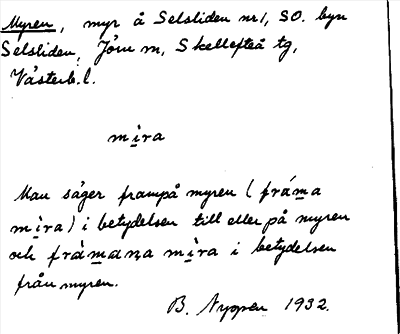 Myren, myr å Selsliden nr 1, SO. byn
Selsliden, Jörn sn, Skellefteå tg,
Västerb. l.
mìra
Man säger frampå myren (fráma
mìra) i betydelsen till eller på myren
och frámana mìra i betydelsen
från myren.
B. 1932.